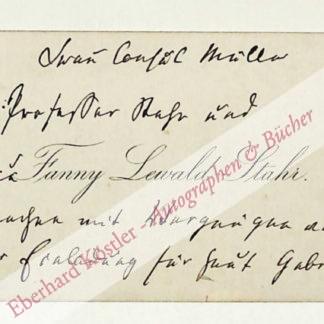 Frau Consul Müller
Professer Stahr und
Fanny Lewald-Stahr.
machen mit Vergnügen
Einladung für heut
Eberhard Köstler - Autographen & Bücher